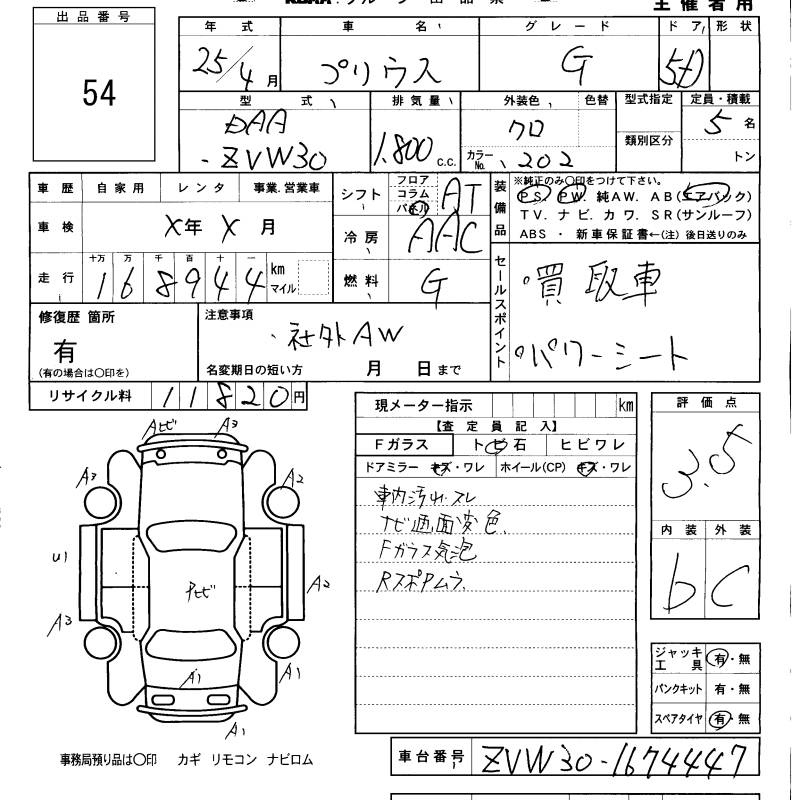 主催者用
出品番号
54
年式 車名 グレード ドア 形状
25/4月 プリウス G 5D
型式 排気量 外装色 色替 型式指定 定員・積載
DAA
ZVW30
1.800 c.c.
クロ
カラーNo. 202
類別区分
5名
トン
車歴 自家用 レンタ 事業.営業車
車検 X年 X月
走行 十万 万 千 百 十 一
168944 km マイル
シフト フロア コラム パネル AT
冷房 AAC
燃料 G
装備品
※純正のみ〇印をつけて下さい。
PS. PW. 純AW. AB(エアバック)
TV. ナビ. カワ. SR(サンルーフ)
ABS ・ 新車保証書←(注) 後日送りのみ
セールスポイント
買取車
パワーシート
修復歴 箇所
有
(有の場合は〇印を)
注意事項
社外AW
名変期日の短い方 月 日まで
リサイクル料 11820円
現メーター指示 km
【査定員記入】
Fガラス トビ石 ヒビワレ
ドアミラー キズ・ワレ ホイール(CP) キズ・ワレ
車内汚れ.スレ
ナビ画面変色.
Fガラス気泡
Rスポアムラ.
評価点
3.5
内装 外装
b C
Aヒビ A3
A3 A2
U1 Pヒビ A2
A3 A1 A1
A1
ジャッキ工具 有・無
パンクキット 有・無
スペアタイヤ 有・無
事務局預り品は〇印 カギ リモコン ナビロム
車台番号 ZVW30-1674447